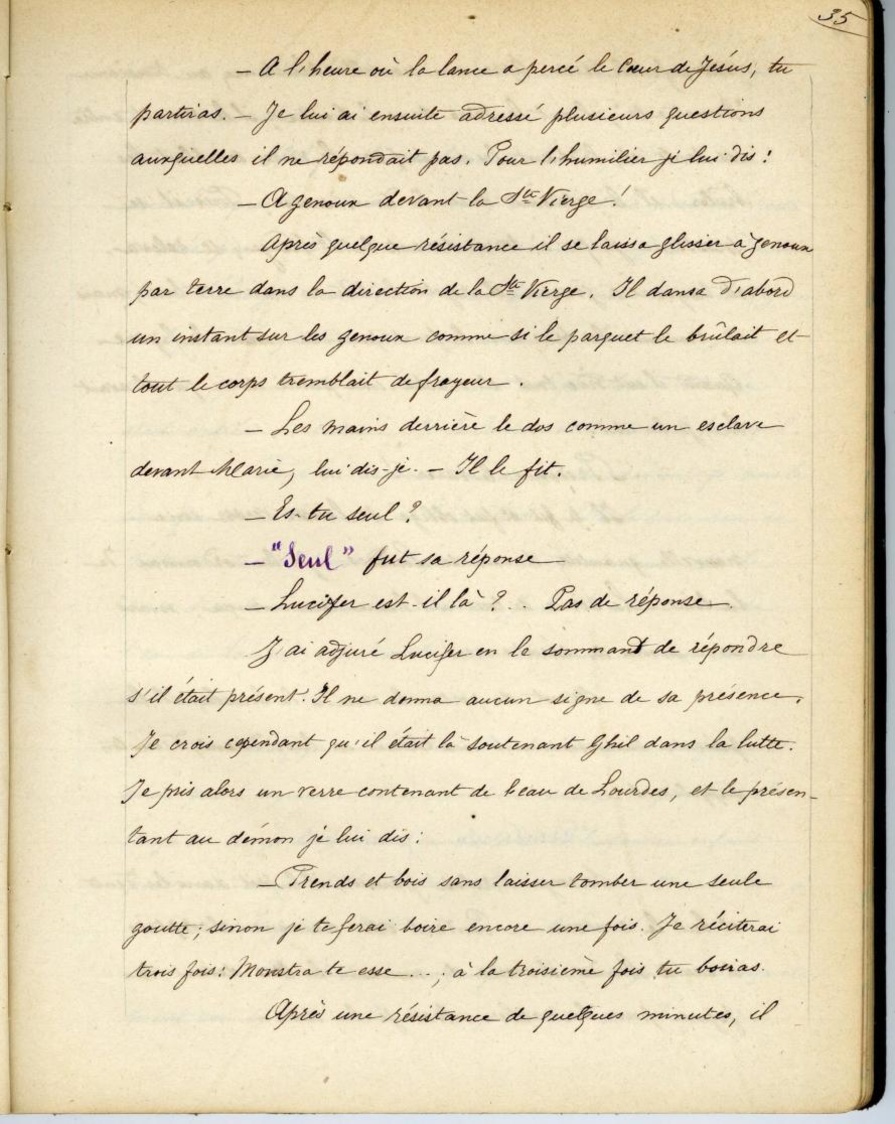 35
— A l'heure où la lance a percé le Cœur de Jésus, tu
partiras. — Je lui ai ensuite adressé plusieurs questions
auxquelles il ne répondait pas. Pour l'humilier je lui dis :
— A genoux devant la Ste Vierge !
Après quelque résistance il se laissa glisser à genoux
par terre dans la direction de la Ste Vierge. Il dansa d'abord
un instant sur les genoux comme si le parquet le brûlait et
tout le corps tremblait de frayeur.
— Les mains derrière le dos comme un esclave
devant Marie, lui dis-je. — Il le fit.
— Es-tu seul ?
— "Seul" fut sa réponse
— Lucifer est-il là ?.. Pas de réponse.
J'ai adjuré Lucifer en le sommant de répondre
s'il était présent. Il ne donna aucun signe de sa présence.
Je crois cependant qu'il était là soutenant Ghil dans la lutte.
Je pris alors un verre contenant de l'eau de Lourdes, et le présen-
tant au démon je lui dis :
— Prends et bois sans laisser tomber une seule
goutte ; sinon je te ferai boire encore une fois. Je réciterai
trois fois : Monstra te esse... ; à la troisième fois tu boiras.
Après une résistance de quelques minutes, il